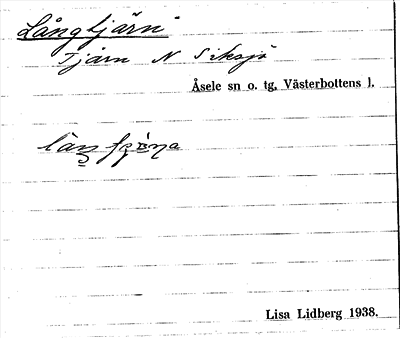 Långtjärn
Tjärn N Siksjö
Åsele sn o. tg, Västerbottens l.
Lisa Lidberg 1938.